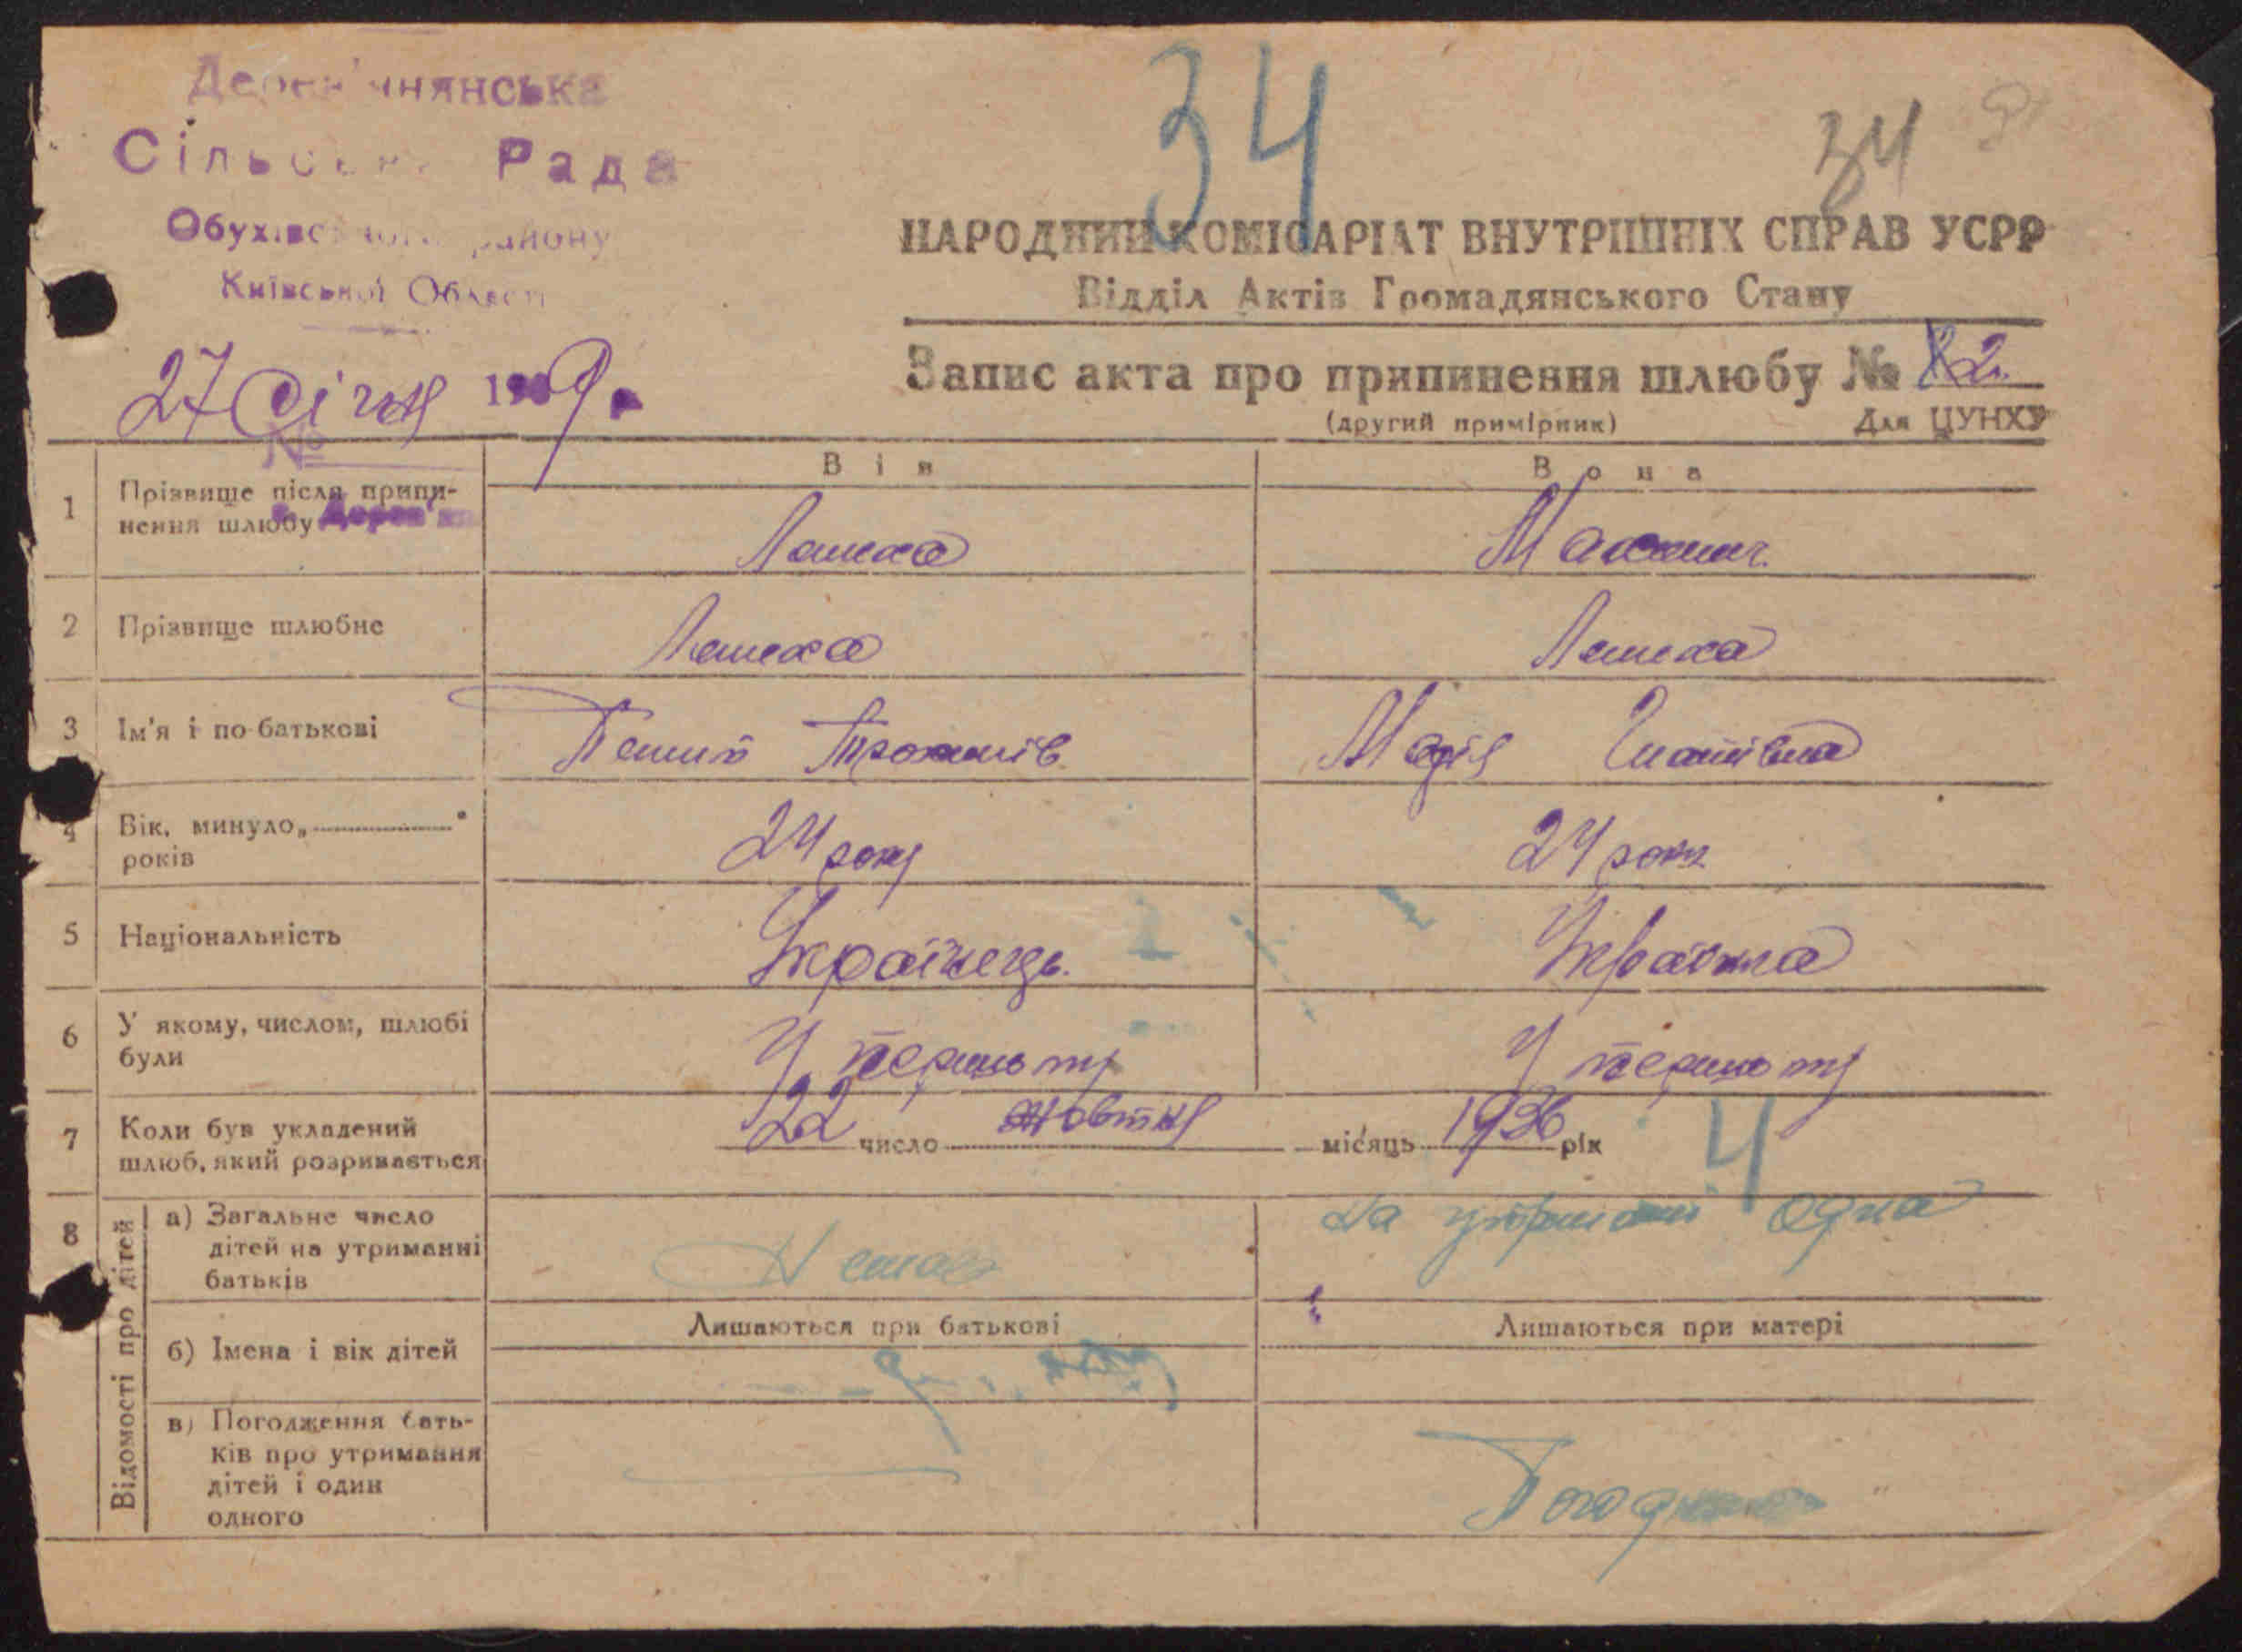 Дерев'янянська
Сільська Рада
Обухівського району
Київської Області
34
34
НАРОДНИЙ КОМІСАРІАТ ВНУТРІШНІХ СПРАВ УСРР
Відділ Актів Громадянського Стану
27 Січня 1939 р.
Запис акта про припинення шлюбу № 82
(другий примірник) Для ЦУНХУ
№
Він Вона
1 Прізвище після припи-
нення шлюбу
2 Прізвище шлюбне
3 Ім'я і по-батькові
Марія
4 Вік, минуло „ “
років
24 роки 24 роки
5 Національність
Українець. Українка
6 У якому, числом, шлюбі
були
У першому У першому
7 Коли був укладений
шлюб, який розривається
22 число жовтня місяць 1936 рік
4
8 Відомості про дітей
а) Загальне число
дітей на утриманні
батьків
Немає
на утриманні одна
б) Імена і вік дітей
Лишаються при батькові Лишаються при матері
в) Погодження бать-
ків про утримання
дітей і один
одного